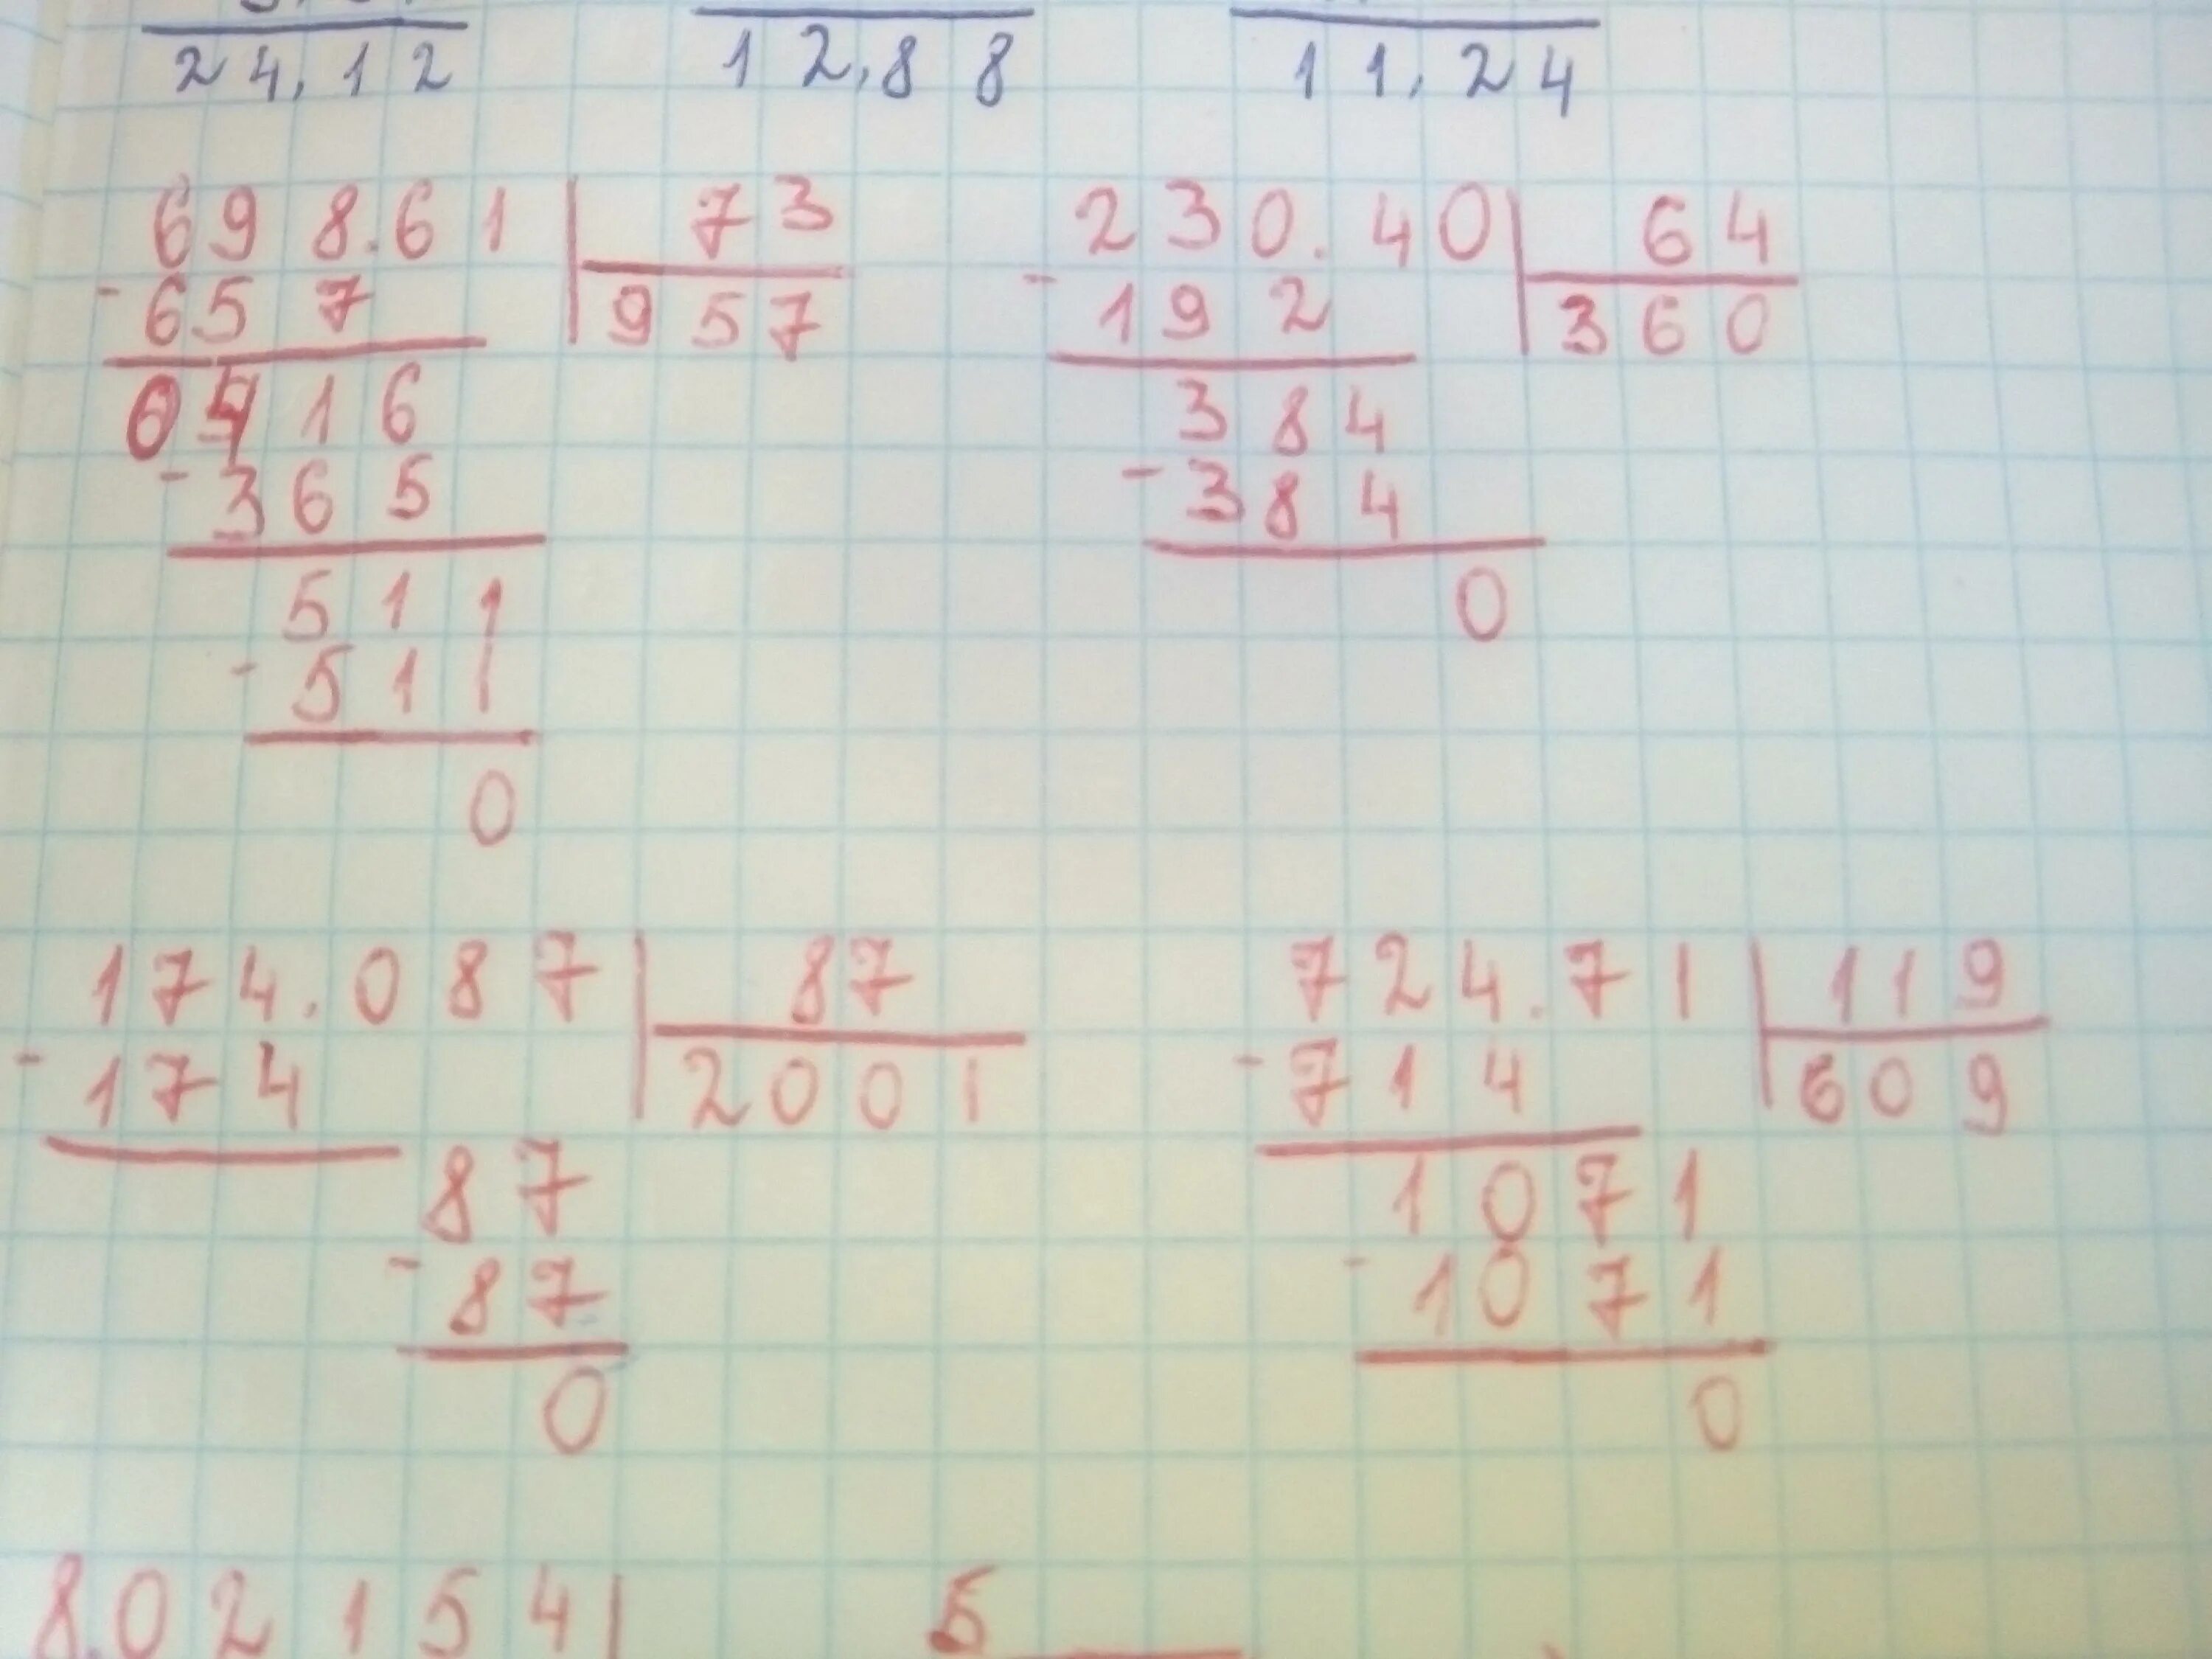 24,12 12,88 11,24
698.61 73
- 657 957
0416
- 365
511
- 511
0
230.40 64
- 192 360
384
- 384
0
174.087 87
- 174 2001
87
- 87
0
724.71 119
- 714 609
1071
- 1071
0
8.02154 5